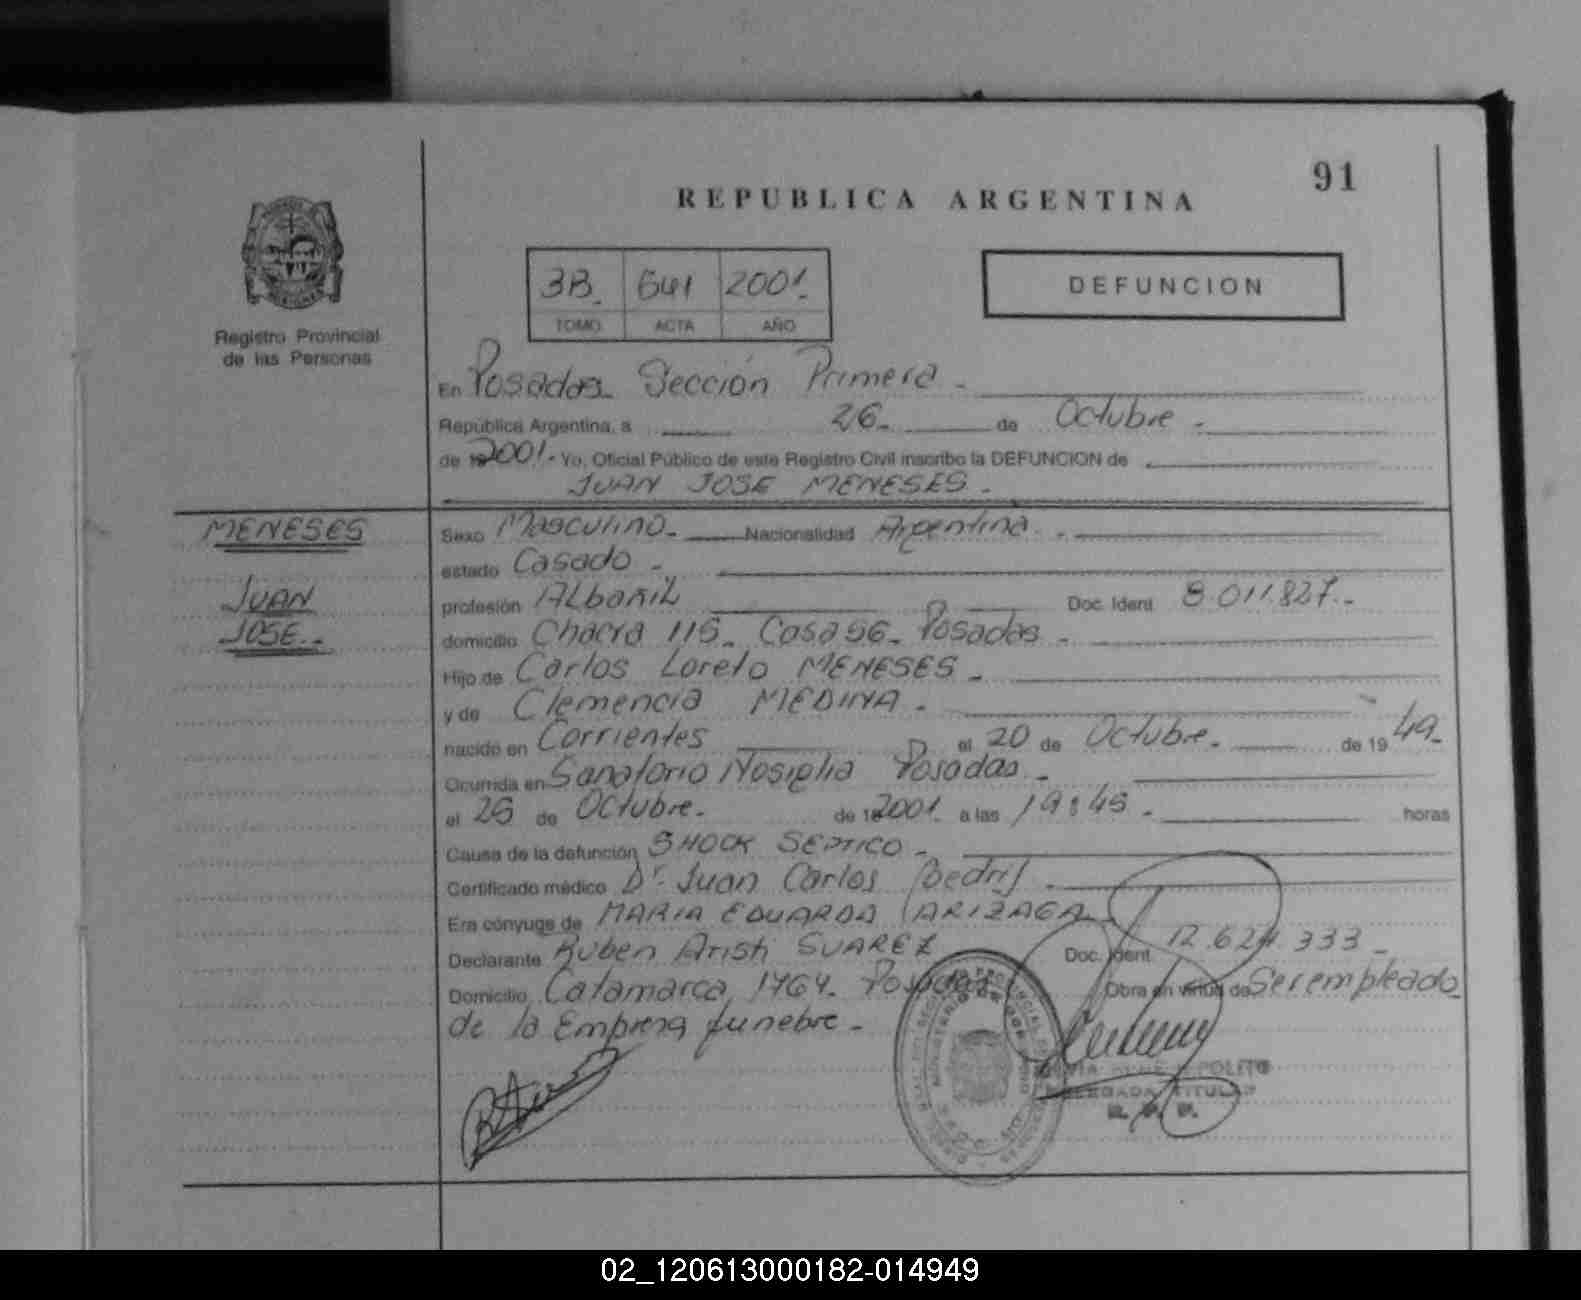 91
REPUBLICA ARGENTINA
3B. 641 2001.
TOMO ACTA AÑO
DEFUNCION
Registro Provincial
de las Personas
En Posadas. Sección Primera.
República Argentina, a 26. de Octubre.
de 19 2001. Yo, Oficial Público de este Registro Civil inscribo la DEFUNCION de
JUAN JOSE MENESES.
MENESES
JUAN
JOSE.
Sexo Masculino. Nacionalidad Argentina.
estado Casado.
profesión Albañil Doc. Ident. 8.011.827.
domicilio Chacra 115. Casa 56. Posadas.
Hijo de Carlos Loreto MENESES.
y de Clemencia MEDINA.
nacido en Corrientes el 20 de Octubre. de 19 49.
Ocurrida en Sanatorio Nosiglia Posadas.
el 25 de Octubre. de 19 2001. a las 19:45. horas
Causa de la defunción SHOCK SEPTICO.
Certificado médico Dr. Juan Carlos
Era cónyuge de MARIA EDUARDA ARIZAGA
Declarante Ruben Aristi SUAREZ Doc. Ident. 12.624.333.
Domicilio Catamarca 1764. Posadas Obra en virtud de Ser empleado
de la Empresa funebre.
DELEGADA TITULAR
02_120613000182-014949